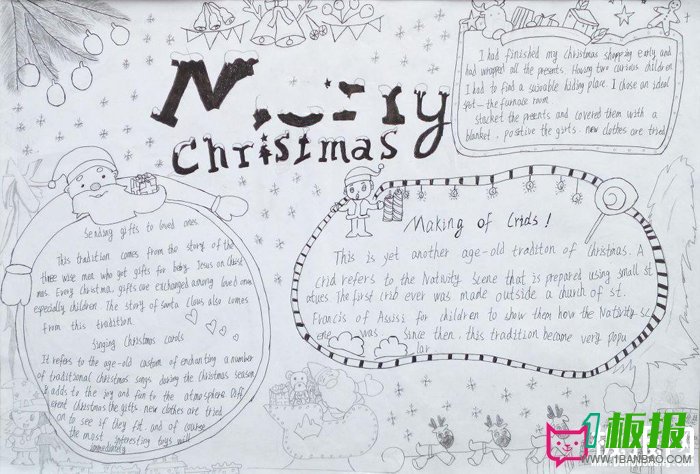 Merry
Christmas
I had finished my Christmas shopping early and
had wrapped all the presents. Having two curious children
I had to find a suivable hiding place. I chose an ideal
spot — the furnace room
stacket the preents and covered them with a
blanket, positive the girts. new clothes are tried
Sending gifts to loved ones.
This tradition comes from the story of the
three wise men who got gifts for baby Jesus on Christ
mas. Every christma, gifts are exchanged among loved ones
especially children. The story of santa claus also comes
from this tradition.
Singing christmas carols
It refers to the age-old custom of enchanting a number
of traditional christmas songs during the Christmas season
adds to the joy and fun to the atmosphere. Diff
erent christmas the gifts. new clothes are tried
on to see if they fit. and of course
the most interesting toys will
immediately
Making of Crids!
This is yet another age-old traditon of christmas. A
crid refers to the Nativity scene that is prepared using small st
atues. The first crib ever was made outside a church of st.
Francis of Assisi for children to show them how the Nativity sc
ene was. Since then, this tradition became very popu
lar
1板报
WWW.1BANBAO.COM